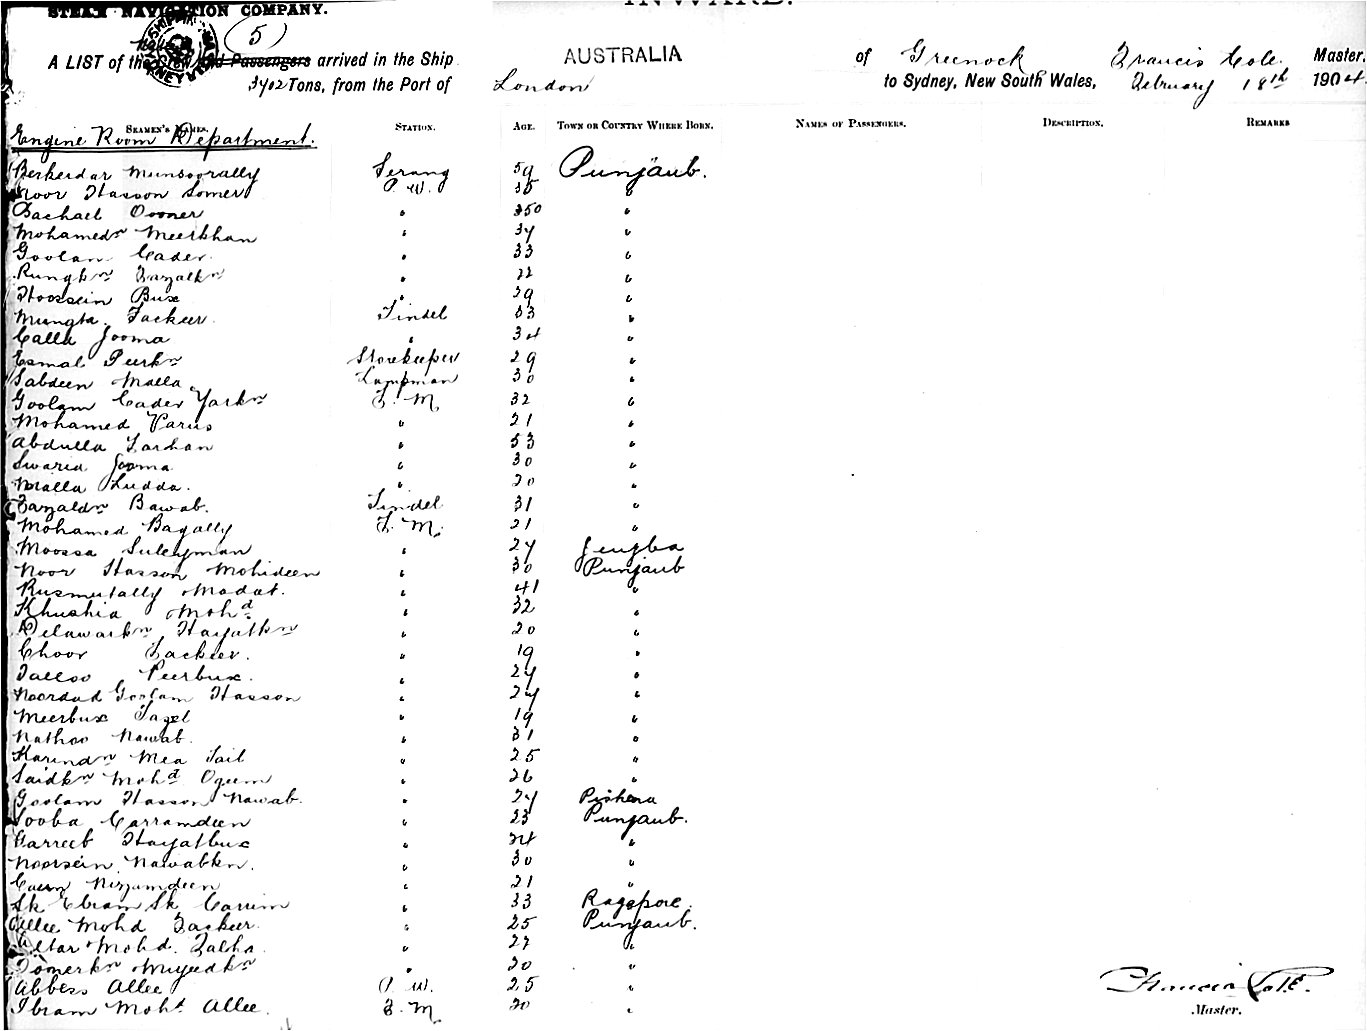 STEAM NAVIGATION COMPANY. INWARD.
(5)
A LIST of the Crew and Passengers arrived in the Ship AUSTRALIA of Greenock Francis Cole Master.
3402 Tons, from the Port of London to Sydney, New South Wales, February 18th 1904
SEAMEN'S NAMES. STATION. AGE. TOWN OR COUNTRY WHERE BORN. NAMES OF PASSENGERS. DESCRIPTION. REMARKS
Engine Room Department.
Beskerdar Munsoorally Serang 59 Punjaub.
Noor Hasson Somer P. W. 35 "
Bachael Oooner " 350 "
Mohamedn Meerkhan " 34 "
Goolam Cader " 33 "
Rungkn Fazalkn " 22 "
Hoossein Bux " 29 "
Mungta Fackeer Tindel 33 "
Calla Jooma " 34 "
Esmal Peerkn Storekeeper 29 "
Sabdeen Malla Lampman 30 "
Goolam Cader Yarkn F. M 32 "
Mohamed Varis " 21 "
Abdulla Larkhan " 53 "
Swaria Jooma " 30 "
Malla Ludda. " 20 "
Fazaldn Bawab. Tindel 31 "
Mohamed Bagally F. M. 21 "
Moossa Suleyman " 24
Noor Hasson Mohideen " 30 Punjaub
Rusmutally Madat. " 41 "
Khushia Mohd " 32 "
Delawarkn Hayatkn " 20 "
Choor Fackeer. " 19 "
Falloo Peerbux. " 24 "
Noordad Goolam Hasson " 24 "
Meerbux Fazel " 19 "
Nathoo Nawab. " 31 "
Karimdn Mea Fail " 25 "
Saidkn Mohd Ogeem " 26 "
Goolam Hasson Nawab. " 24 Pishena
Sooba Carramdeen " 23 Punjaub.
Garreeb Hayatbux " 24 "
Noorsein Nawabkn. " 30 "
Nizamdeen " 21 "
Sk Ebram Sk Carrim " 33 Ragepore.
Allee Mohd Fackeer. " 25 Punjaub.
Altar Mohd. Zalha. " 22 "
Fomerkn Muyeedkn " 20 "
Abbess Allee P. W. 25 "
Ibram Mohd Allee. F. M 20 "
Francis Cole
Master.